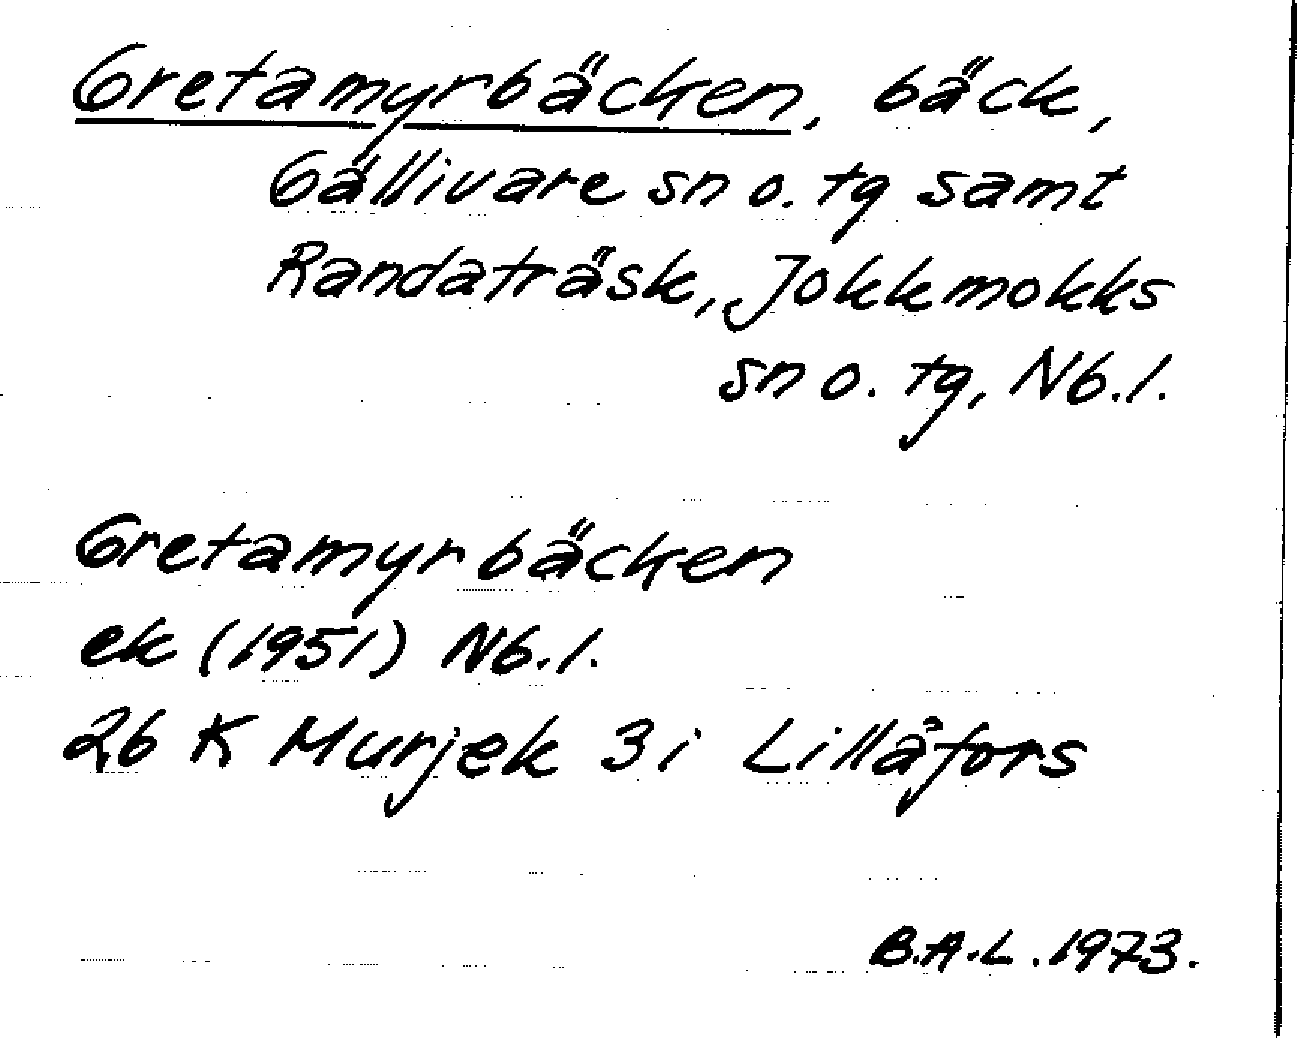 Gretamyrbäcken, bäck,
Gällivare sn o. tg samt
Randaträsk, Jokkmokks
sn o. tg, Nb.l.
Gretamyrbäcken
ek (1951) Nb.l.
26 K Murjek 3i Lillåfors
B.A.L. 1973.